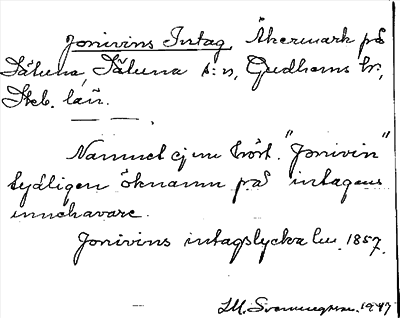 Jonivins Intag, Åkermark på
Sätuna, Sätuna s:n, Gudhems hr,
Skb. län.
Namnet ej nu hört. "Jonivin"
tydligen öknamn på intagens
innehavare.
Jonivins intagslycka lm. 1857.
1947